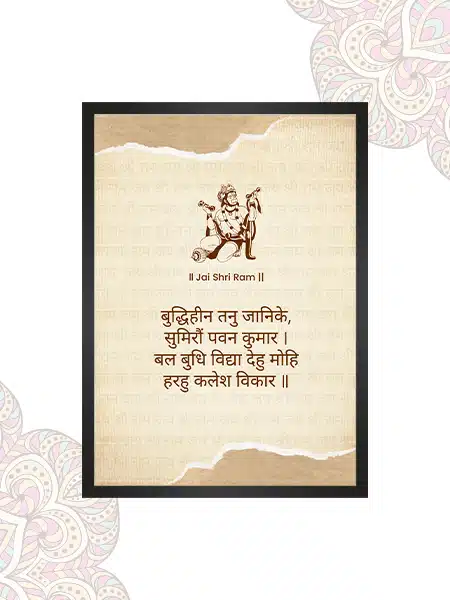 ॥ Jai Shri Ram ||
बुद्धिहीन तनु जानिके,
सुमिरौं पवन कुमार ।
बल बुधि विद्या देहु मोहि
हरहु कलेश विकार ॥